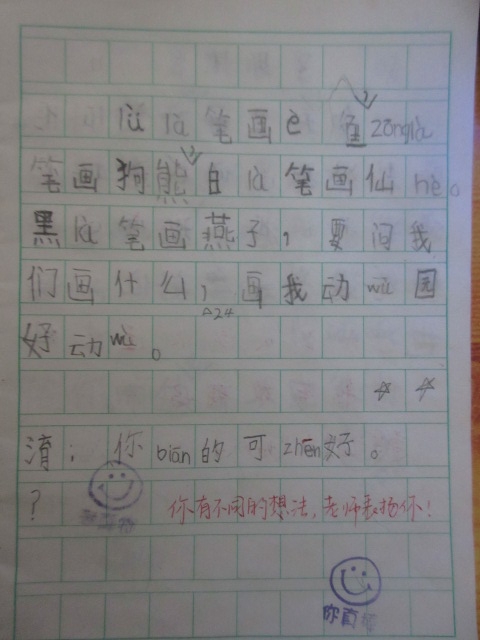 lǜ là 笔画è 鱼 zōnglà
笔画狗熊白là笔画仙hè。
黑là笔画燕子,要问我
们画什么,画我动wù国
好动wù。
△24
☆ ☆
淯:你biān的可zhēn好。
?
你有不同的想法,老师表扬你!
你真棒